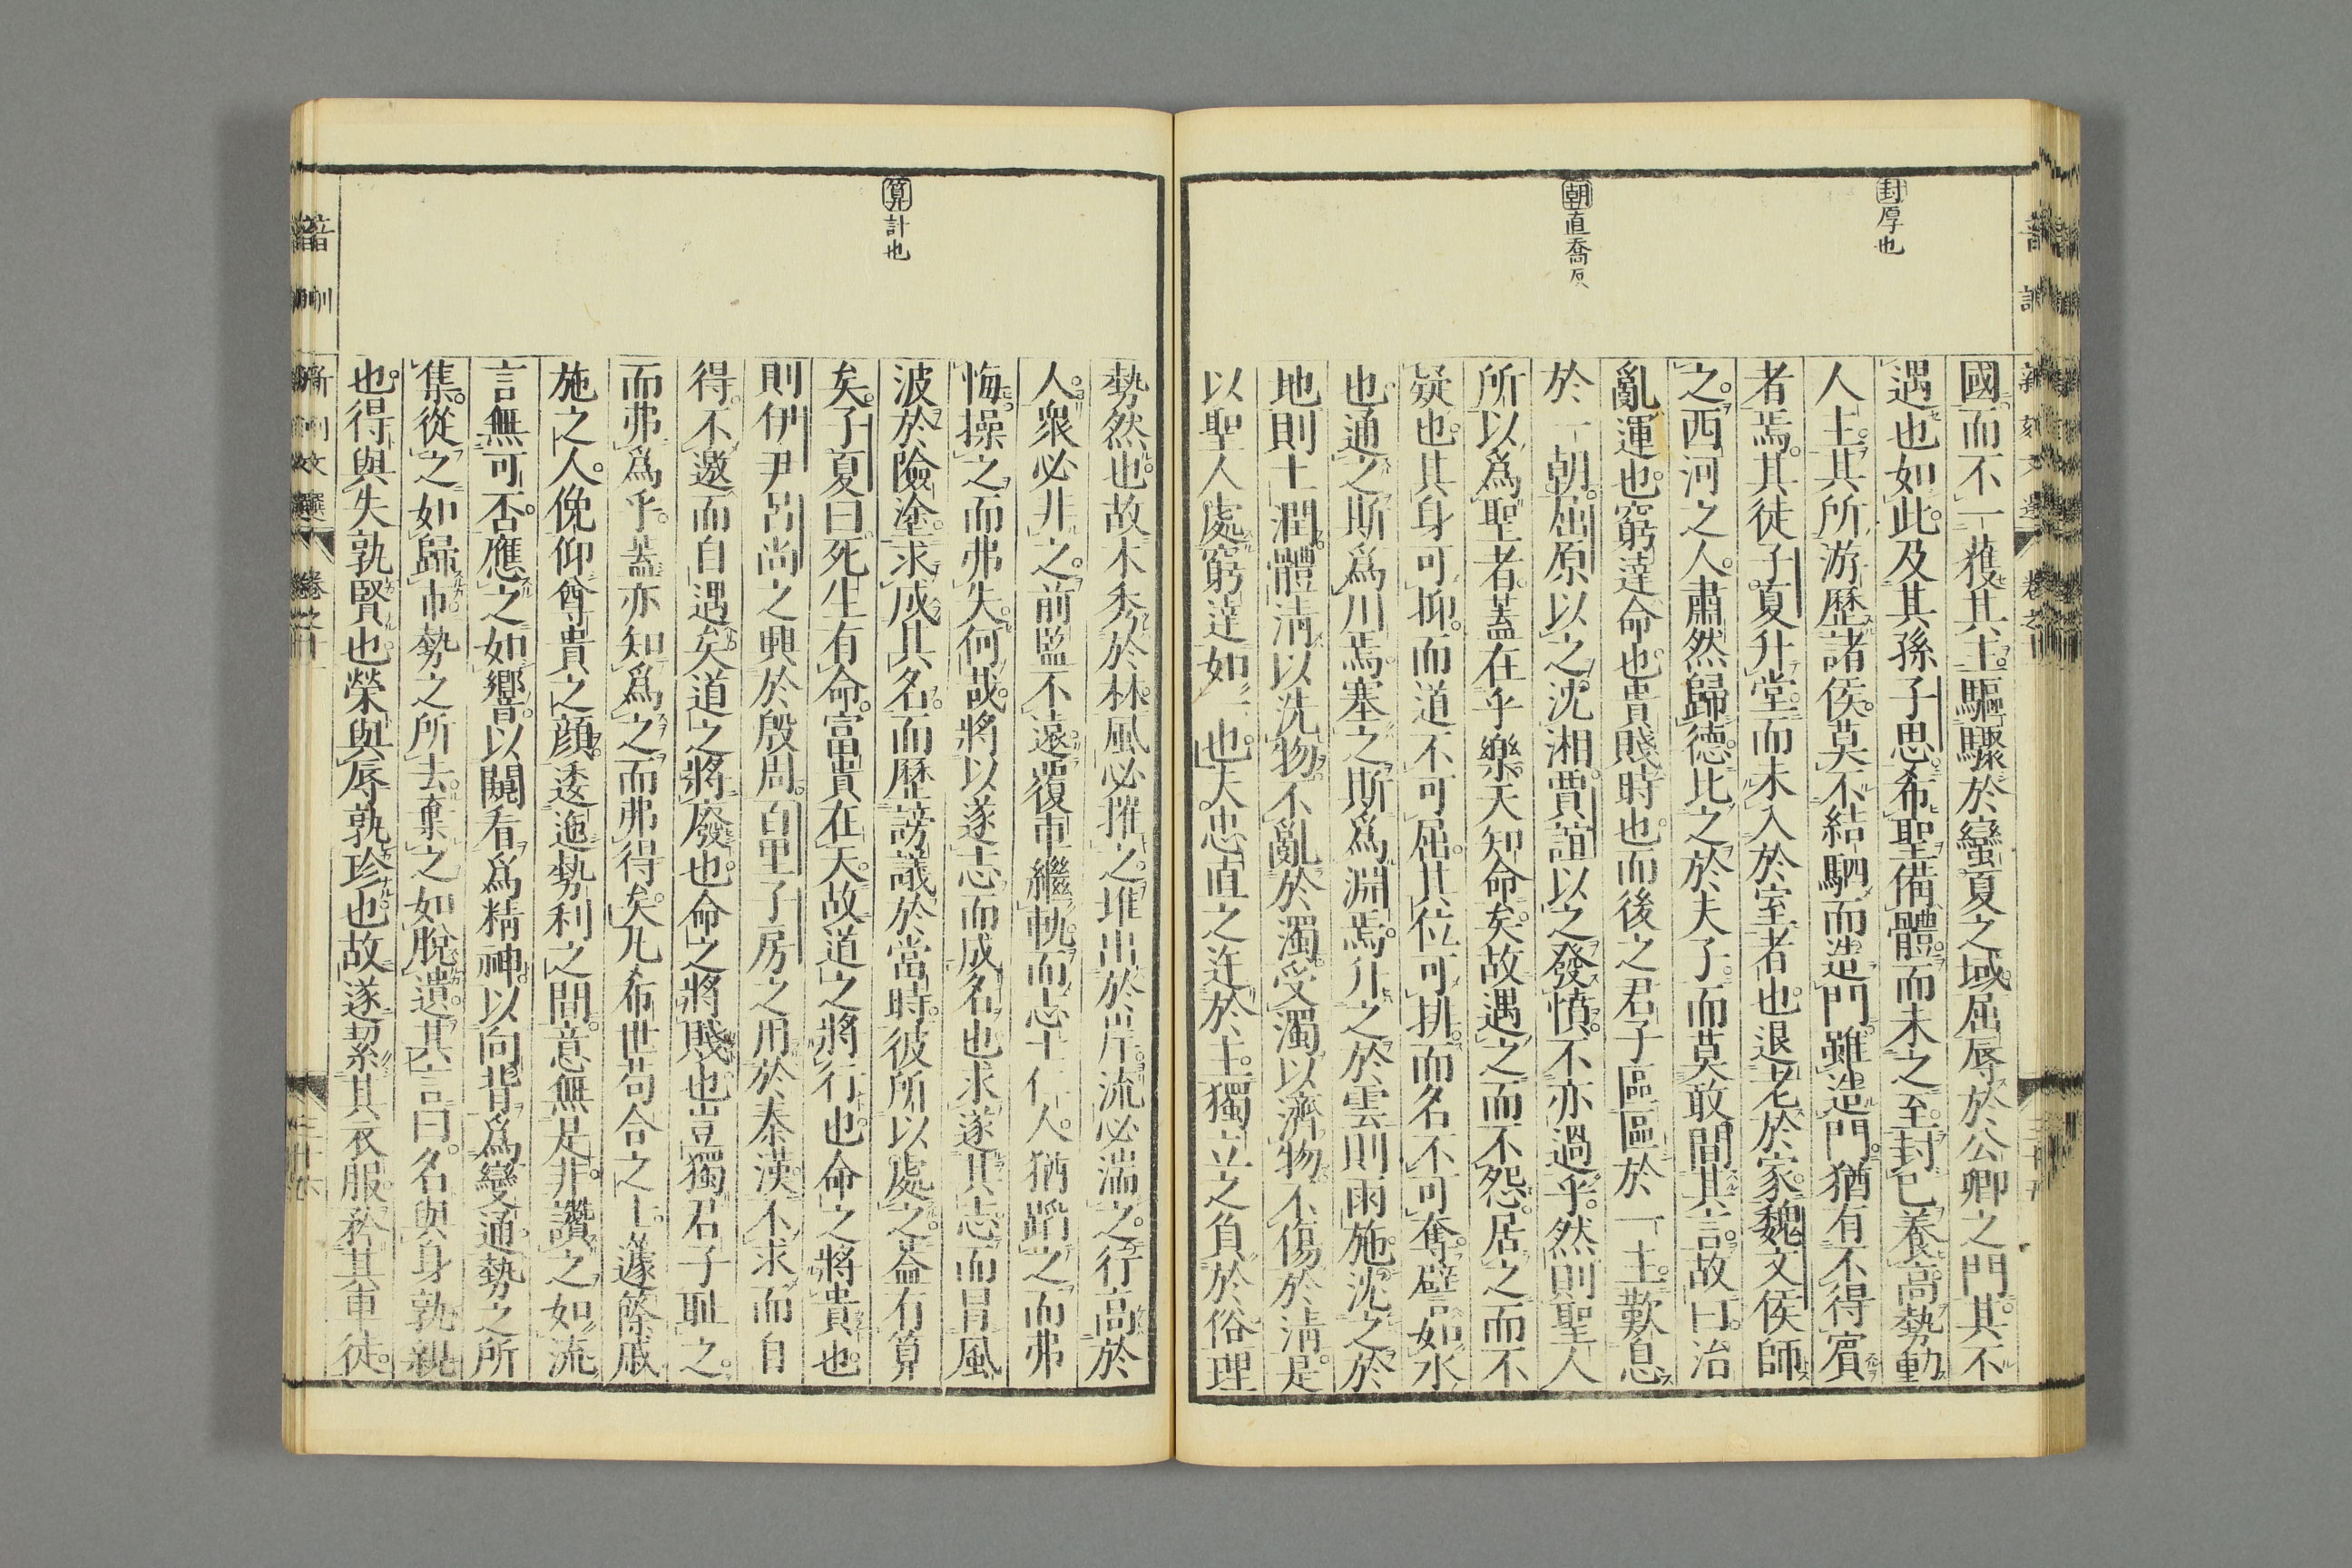 封厚也
朝直喬反
國而不一獲其主驅驟於蠻夏之域屈辱於公卿之門其不
遇也如此及其孫子思希聖備體而未之至封已養高勢動
人主其所游歷諸侯莫不結駟而造門雖造門猶有不得賓
者焉其徒子夏升堂而未入於室者也退老於家魏文侯師
之西河之人肅然歸德比之於夫子而莫敢間其言故曰治
亂運也窮達命也貴賤時也而後之君子區區於一主歎息
於一朝屈原以之沈湘賈誼以之發憤不亦過乎然則聖人
所以爲聖者蓋在乎樂天知命矣故遇之而不怨居之而不
疑也其身可抑而道不可屈其位可排而名不可奪譬如水
也通之斯爲川焉塞之斯爲淵焉升之於雲則雨施沈之於
地則土潤體淸以洗物不亂於濁受濁以濟物不傷於淸是
以聖人處窮達如一也夫忠直之迕於主獨立之負於俗理
算計也
勢然也故木秀於林風必摧之堆出於岸流必湍之行高於
人衆必非之前監不遠覆車繼軌而志士仁人猶蹈之而弗
悔操之而弗失何哉將以遂志而成名也求遂其志而冒風
波於險塗求成其名而歷謗議於當時彼所以處之蓋有算
矣子夏曰死生有命富貴在天故道之將行也命之將貴也
則伊尹呂尚之興於殷周百里子房之用於秦漢不求而自
得不邀而自遇矣道之將廢也命之將賤也豈獨君子恥之
而弗爲乎蓋亦知爲之而弗得矣凡希世苟合之士蘧篨戚
施之人俛仰尊貴之顔逶迤勢利之間意無是非讚之如流
言無可否應之如響以闚看爲精神以向背爲變通勢之所
集從之如歸市勢之所去棄之如脫遺其言曰名與身孰親
也得與失孰賢也榮與辱孰珍也故遂絜其衣服矜其車徒
音訓
新刻文選
卷之